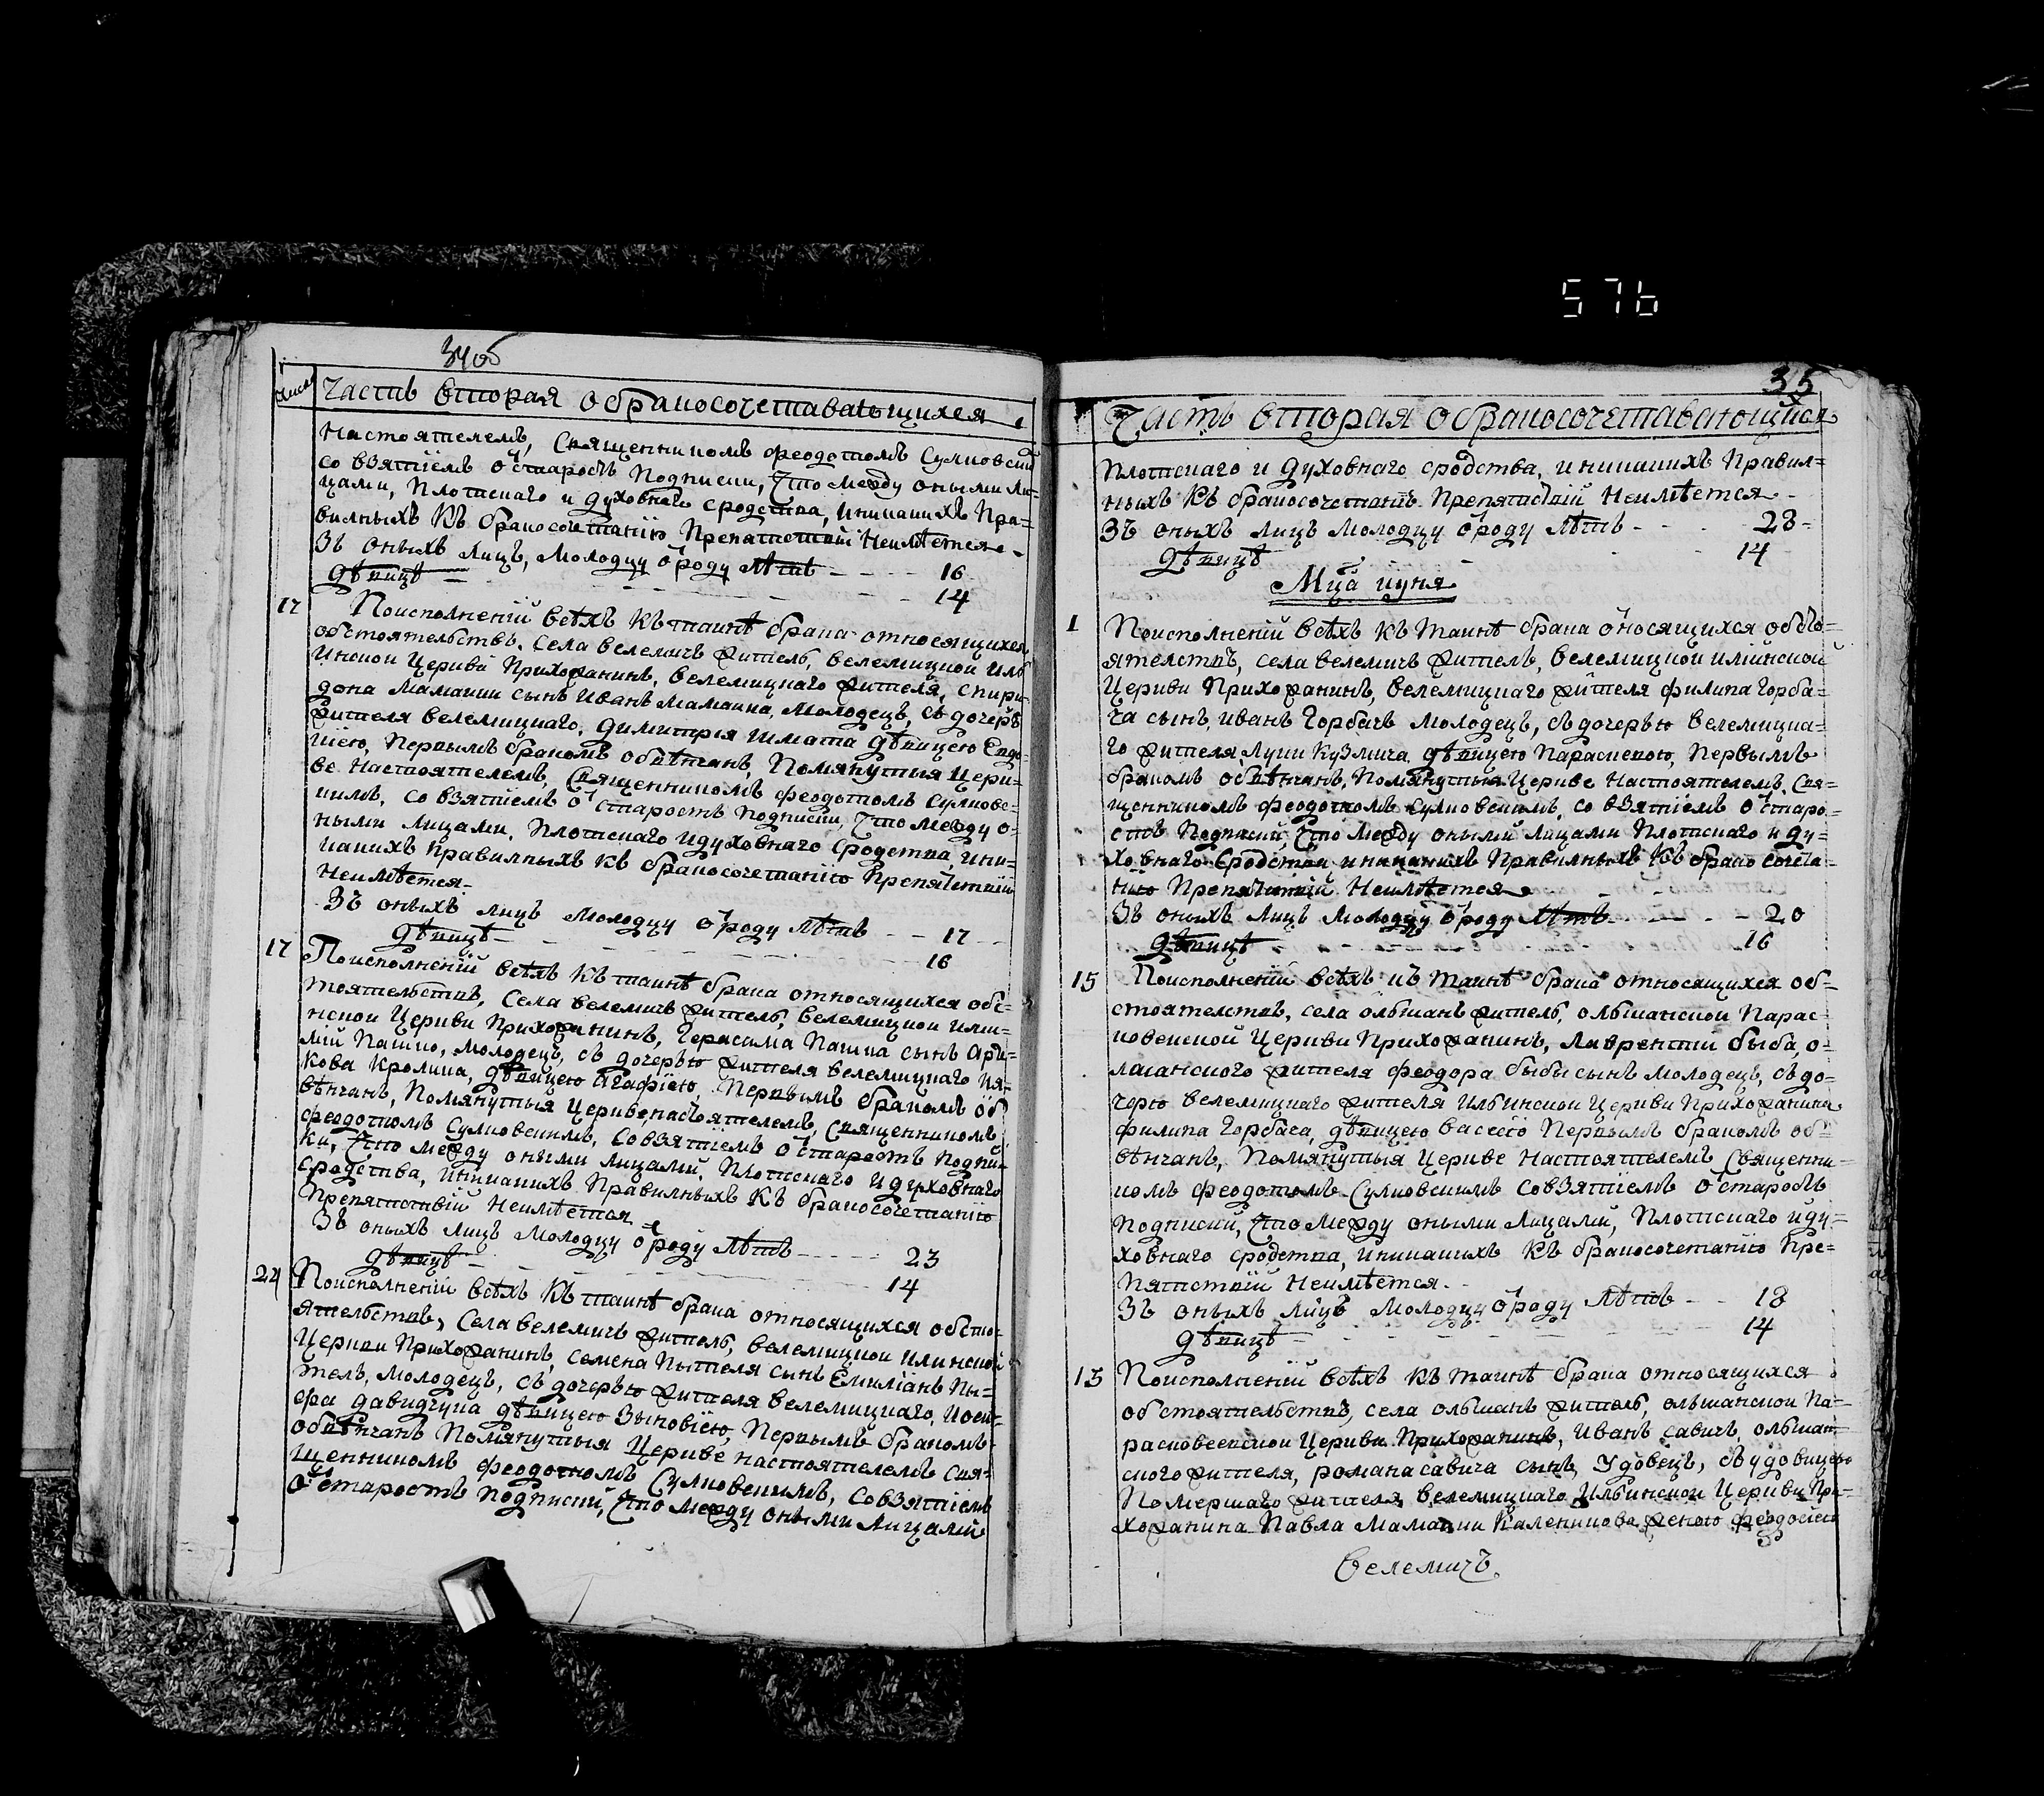 576
34 об
Часть вторая о бракосочетавающихся
Настоятелемъ, Священникомъ Феодотомъ Сулковски
со взятіемъ о старостъ подписки, что между оными ли-
цами, плотскаго и духовнаго сродства, иникакихъ пра-
вилныхъ къ бракосочетанію препятствій неимѣется
Зъ оныхъ лицъ, молодцу ѿроду лѣтъ - - - 16
дѣвицѣ - - - 14
17 Поисполненій всѣхъ къ таинѣ брака относящихся
обстоятельствъ, села велемичъ житель, велемицкой иль
инской церкви прихожанинъ, велемицкаго жителя, спири-
дона мамайки сынъ иванъ мамайка, молодецъ, съ дочерью
жителя велемицкаго, димитрія шмата дѣвицею Евдо-
кіею, первымъ бракомъ обвѣнчанъ, помянутыя церк-
ве настоятелемъ, священникомъ феодотомъ сулковс-
кимъ, со взятіемъ ѿ старостъ подписки, что между о-
ными лицами, плотскаго идуховнаго сродства, ини-
какихъ правилныхъ къ бракосочетанію препятствій
неимѣется.
Зъ оныхъ лицъ молодцу ѿроду лѣтъ - - 17
дѣвицѣ - - - 16
17 Поисполненій всѣхъ къ таинѣ брака относящихся обс-
тоятельствъ, села велемичъ житель, велемицкой или-
нской церкви прихожанинъ, герасима пашка сынъ
молодецъ, съ дочерью жителя велемицкаго Ия-
кова кролика, дѣвицею агафіею, первымъ бракомъ об
вѣнчанъ, помянутыя церкве, настоятелемъ, священникомъ
феодотомъ сулковскимъ, совзятіемъ ѿ старостъ подпис-
ки, что между оными лицами, плотскаго и духовнаго
сродства, иникакихъ правилныхъ къ бракосочетанію
препятствій неимѣется
Зъ оныхъ лицъ молодцу ѿроду лѣтъ - - - 23
дѣвицѣ - - - 14
24 Поисполненій всѣхъ къ таинѣ брака относящихся обсто-
ятельствъ, села велемичъ житель, велемицкой илинской
церкви прихожанинъ, семена пытеля сынъ Емиліанъ пы-
тель, молодецъ, съ дочерью жителя велемицкаго, иоси-
фа давидчука дѣвицею зѣновіею, первымъ бракомъ
обвѣнчанъ помянутыя церкве настоятелемъ свя-
щенникомъ феодотомъ сулковскимъ, совзятіемъ
ѿ старостъ подписки, что между оными лицами
35
Часть вторая о бракосочетавающихся
плотскаго и духовнаго сродства, иникакихъ правил-
ныхъ къ бракосочетанію препятствій неимѣется
Зъ оныхъ лицъ молодцу ѿроду лѣтъ - - - 23
дѣвицѣ - - - 14
Мца іуня
1 Поисполненій всѣхъ къ таинѣ брака ѿносящихся обсто-
ятелствъ, села велемичъ житель, велемицкой иліинской
церкви прихожанинъ, велемицкаго жителя филипа горба-
ча сынъ, иванъ горбачъ молодецъ, съ дочерью велемицка-
го жителя луки кузмича, дѣвицею параскевою, первымъ
бракомъ обвѣнчанъ, помянутыя церкве настоятелемъ, свя-
щенникомъ феодотомъ сулковскимъ, со взятіемъ ѿ старо-
стъ подписки, что между оными лицами плотскаго и ду-
ховнаго сродства, иникакихъ правилныхъ къ бракосочета-
нію препятствій неимѣется
Зъ оныхъ лицъ молодцу ѿроду лѣтъ - - - 20
дѣвицѣ - - - 16
15 Поисполненій всѣхъ къ таинѣ брака относящихся об-
стоятелствъ, села олышанъ житель, олышанской парас-
ковейской церкви прихожанинъ, лаврентий быба, о-
жителя феодора быбы сынъ молодецъ, съ до-
черю велемицкаго жителя ильинской церкви прихожанина
филипа горбача, дѣвицею васcою первымъ бракомъ об-
вѣнчанъ, помянутыя церкве настоятелемъ священни-
комъ феодотомъ сулковскимъ совзятіемъ ѿ старостъ
подписки, что между оными лицами, плотскаго иду-
ховнаго сродства, иникакихъ къ бракосочетанію пре-
пятствій неимѣется.
Зъ оныхъ лицъ молодцу ѿроду лѣтъ - - 18
дѣвицѣ - - - 14
15 Поисполненій всѣхъ къ таинѣ брака относящихся
обстоятельствъ, села олышанъ житель, олышанской па-
расковеевской церкви прихожанинъ, иванъ савичъ, олышан-
ского жителя, романа савича сынъ, удовецъ, съ удовицею
помершаго жителя велемицкаго ильинской церкви при-
хожанина павла мамайки каленикова женою феодосіею
велемичъ.